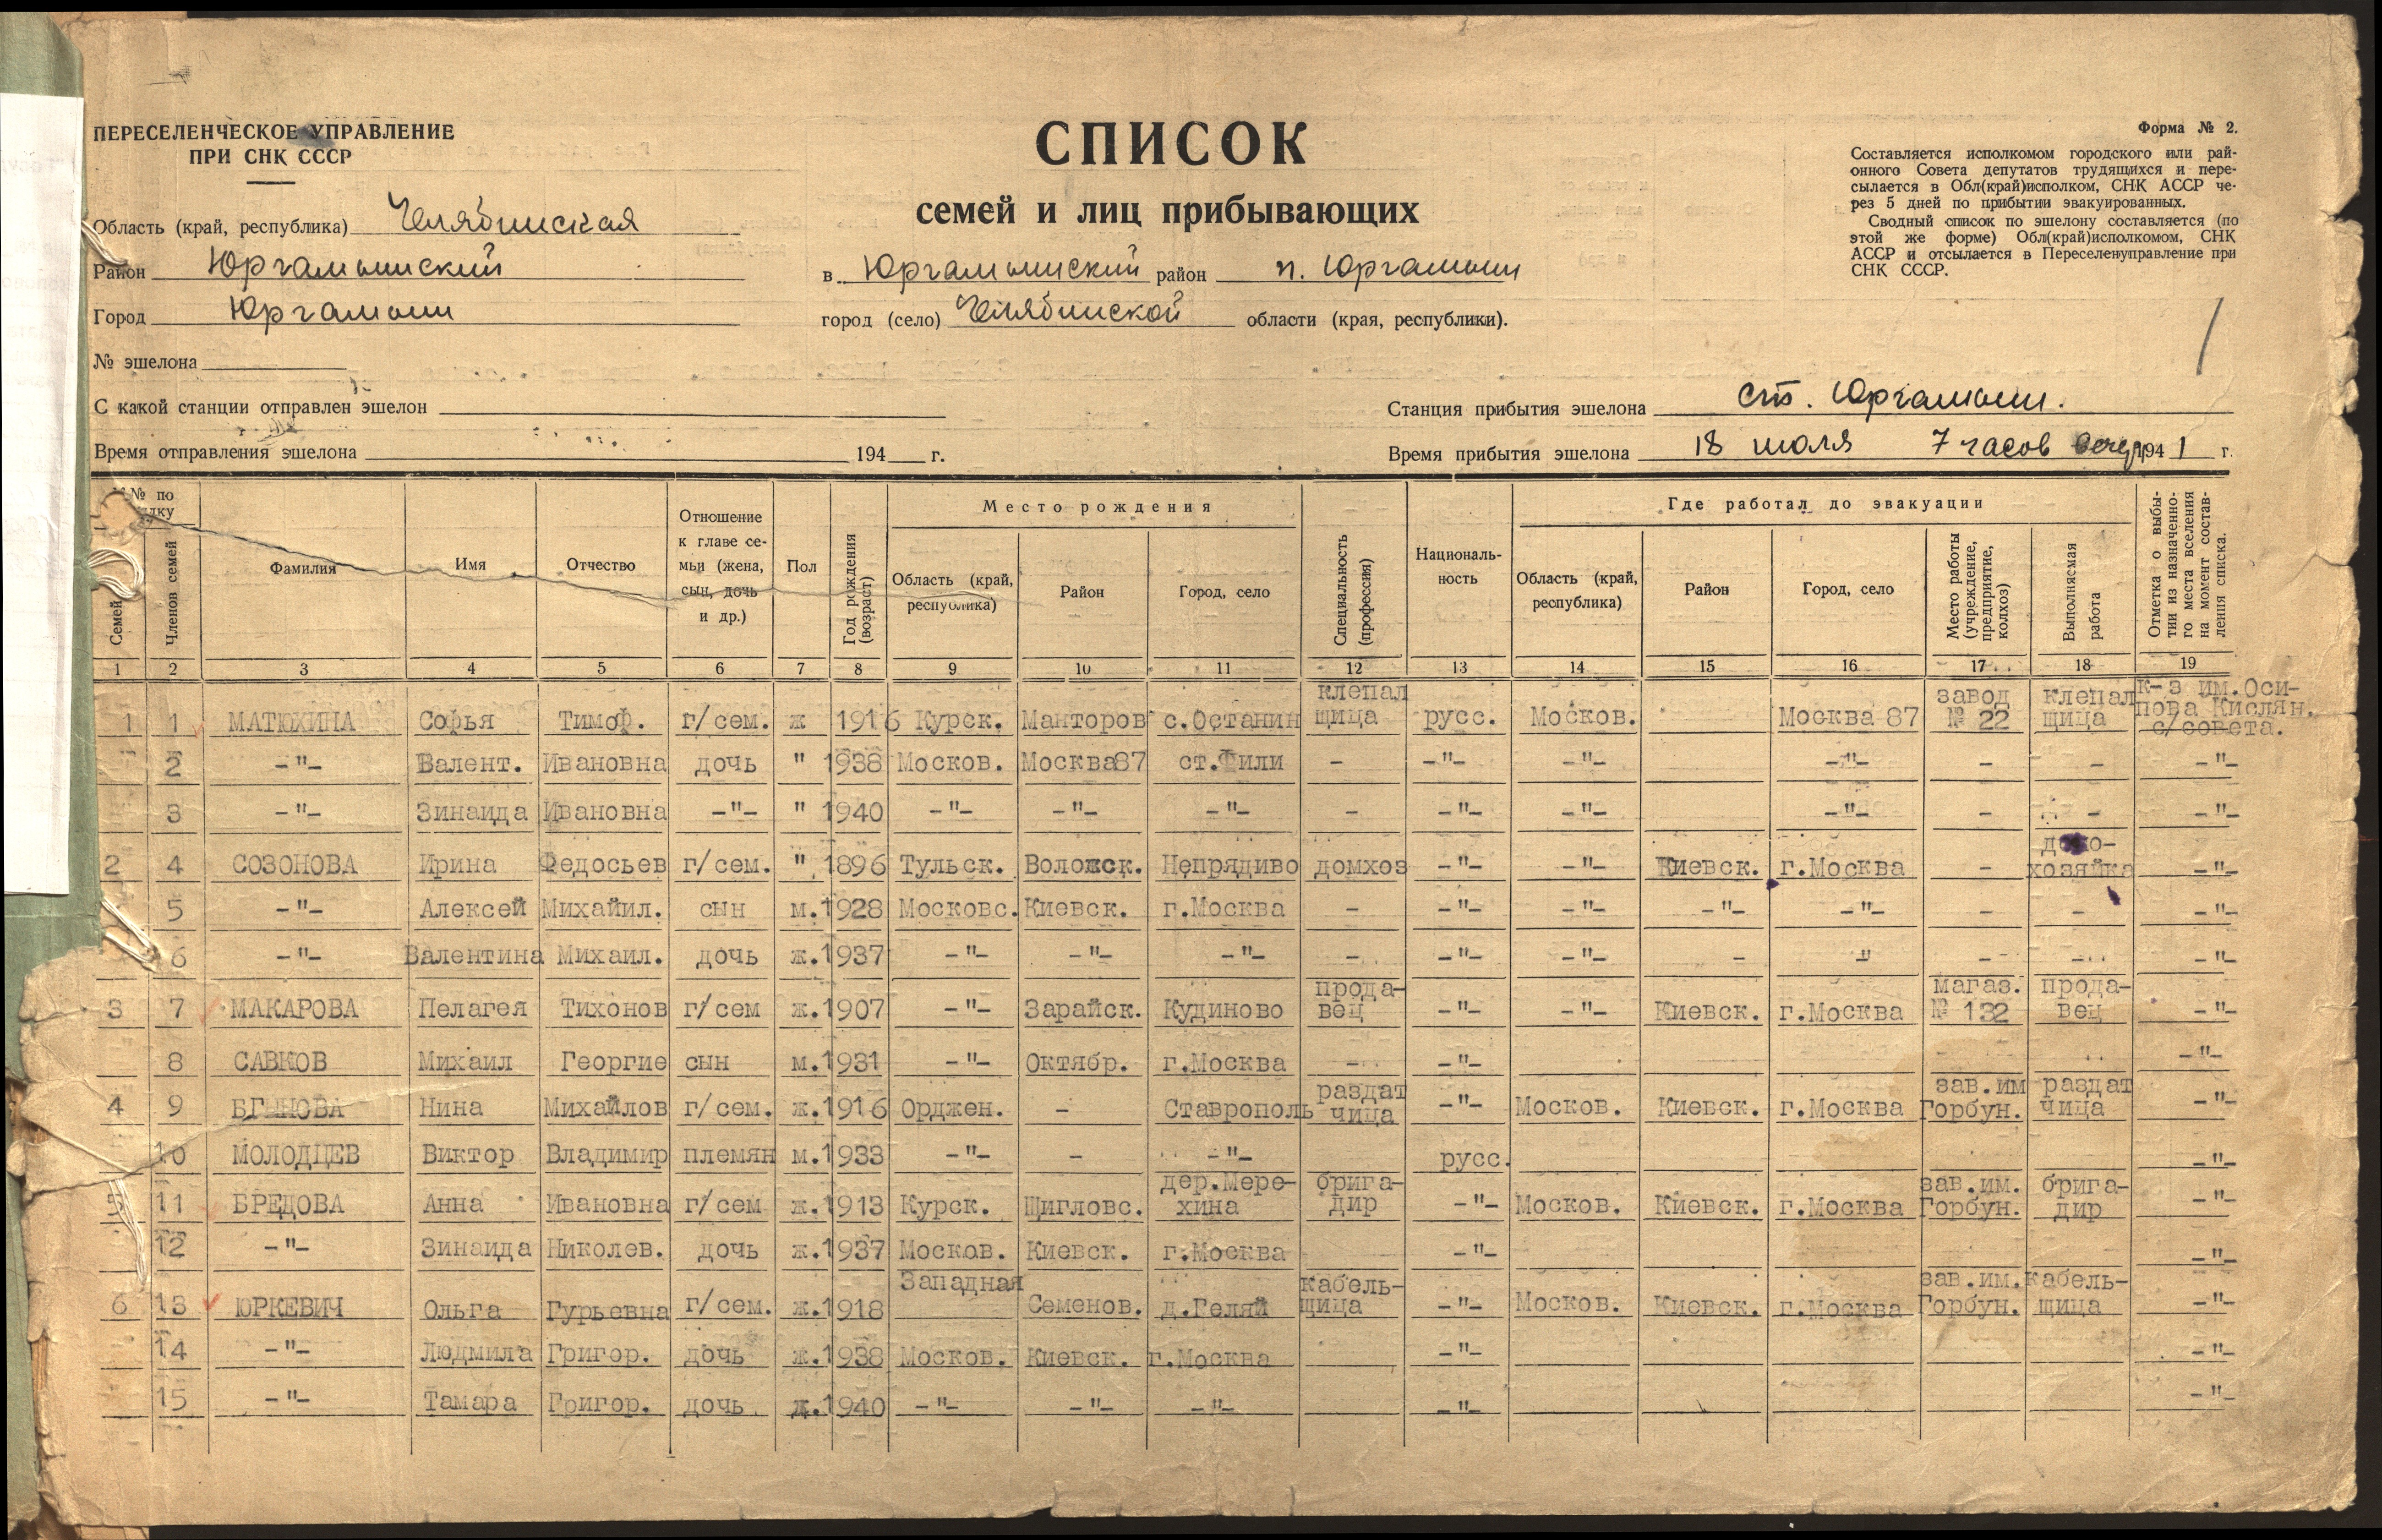 ПЕРЕСЕЛЕНЧЕСКОЕ УПРАВЛЕНИЕ
ПРИ СНК СССР
Область (край, республика) Челябинская
Район Юргамышский
Город Юргамыш
№ эшелона
С какой станции отправлен эшелон
Время отправления эшелона 194 г.
СПИСОК
семей и лиц прибывающих
в Юргамышский район п. Юргамыш
город (село) Челябинской области (края, республики).
Форма № 2.
Составляется исполкомом городского или рай-
онного Совета депутатов трудящихся и пере-
сылается в Обл(край)исполком, СНК АССР че-
рез 5 дней по прибытии эвакуированных.
Сводный список по эшелону составляется (по
этой же форме) Обл(край)исполкомом, СНК
АССР и отсылается в Переселенуправление при
СНК СССР.
Станция прибытия эшелона ст. Юргамыш.
Время прибытия эшелона 18 июля 7 часов вечера 1941 г.
№ по
Семей
Членов семей
Фамилия
Имя
Отчество
Отношение
к главе се-
мьи (жена,
сын, дочь
и др.)
Пол
Год рождения
(возраст)
Место рождения
Область (край,
республика)
Район
Город, село
Специальность
(профессия)
Националь-
ность
Где работал до эвакуации
Область (край,
республика)
Район
Город, село
Место работы
(учреждение,
предприятие,
колхоз)
Выполняемая
работа
Отметка о выбы-
тии из назначенно-
го места вселения
на момент состав-
ления списка.
1 2 3 4 5 6 7 8 9 10 11 12 13 14 15 16 17 18 19
клепал завод клепал к-з им.Оси-
1 1 МАТЮХИНА Софья Тимоф. г/сем. ж 1916 Курск. Манторов с.Останин щица русс. Москов. Москва 87 № 22 щица пова Кислян.
с/совета.
2 -"- Валент. Ивановна дочь " 1938 Москов. Москва87 ст.Фили - -"- -"- -"- - - -"-
3 -"- Зинаида Ивановна -"- " 1940 -"- -"- -"- - -"- -"- -"- - - -"-
домо-
2 4 СОЗОНОВА Ирина Федосьев г/сем. " 1896 Тульск. Воложск. Непрядиво домхоз -"- -"- Киевск. г.Москва - хозяйка -"-
5 -"- Алексей Михайил. сын м. 1928 Московс. Киевск. г.Москва - -"- -"- -"- -"- - - -"-
6 -"- Валентина Михаил. дочь ж. 1937 -"- -"- -"- - -"- -"- - -"- - - -"-
прода- магаз. прода-
3 7 МАКАРОВА Пелагея Тихонов г/сем ж. 1907 -"- Зарайск. Кудиново вец -"- -"- Киевск. г.Москва № 132 вец -"-
8 САВКОВ Михаил Георгие сын м. 1931 -"- Октябр. г.Москва - -"- -"-
раздат зав.им раздат
4 9 БГЫНОВА Нина Михайлов г/сем. ж. 1916 Орджен. - Ставрополь чица -"- Москов. Киевск. г.Москва Горбун. чица -"-
10 МОЛОДЦЕВ Виктор Владимир племян м. 1933 -"- - -"- русс. -"-
дер.Мере- брига- зав.им. брига-
5 11 БРЕДОВА Анна Ивановна г/сем ж. 1913 Курск. Щигловс. хина дир -"- Москов. Киевск. г.Москва Горбун. дир -"-
12 -"- Зинаида Николев. дочь ж. 1937 Москов. Киевск. г.Москва -"- -"-
Западная кабель- зав.им. кабель-
6 13 ЮРКЕВИЧ Ольга Гурьевна г/сем. ж. 1918 Семенов. д.Геляй щица -"- Москов. Киевск. г.Москва Горбун. щица -"-
14 -"- Людмила Григор. дочь ж. 1938 Москов. Киевск. г.Москва -"- -"-
15 -"- Тамара Григор. дочь ж. 1940 -"- -"- -"- -"- -"-